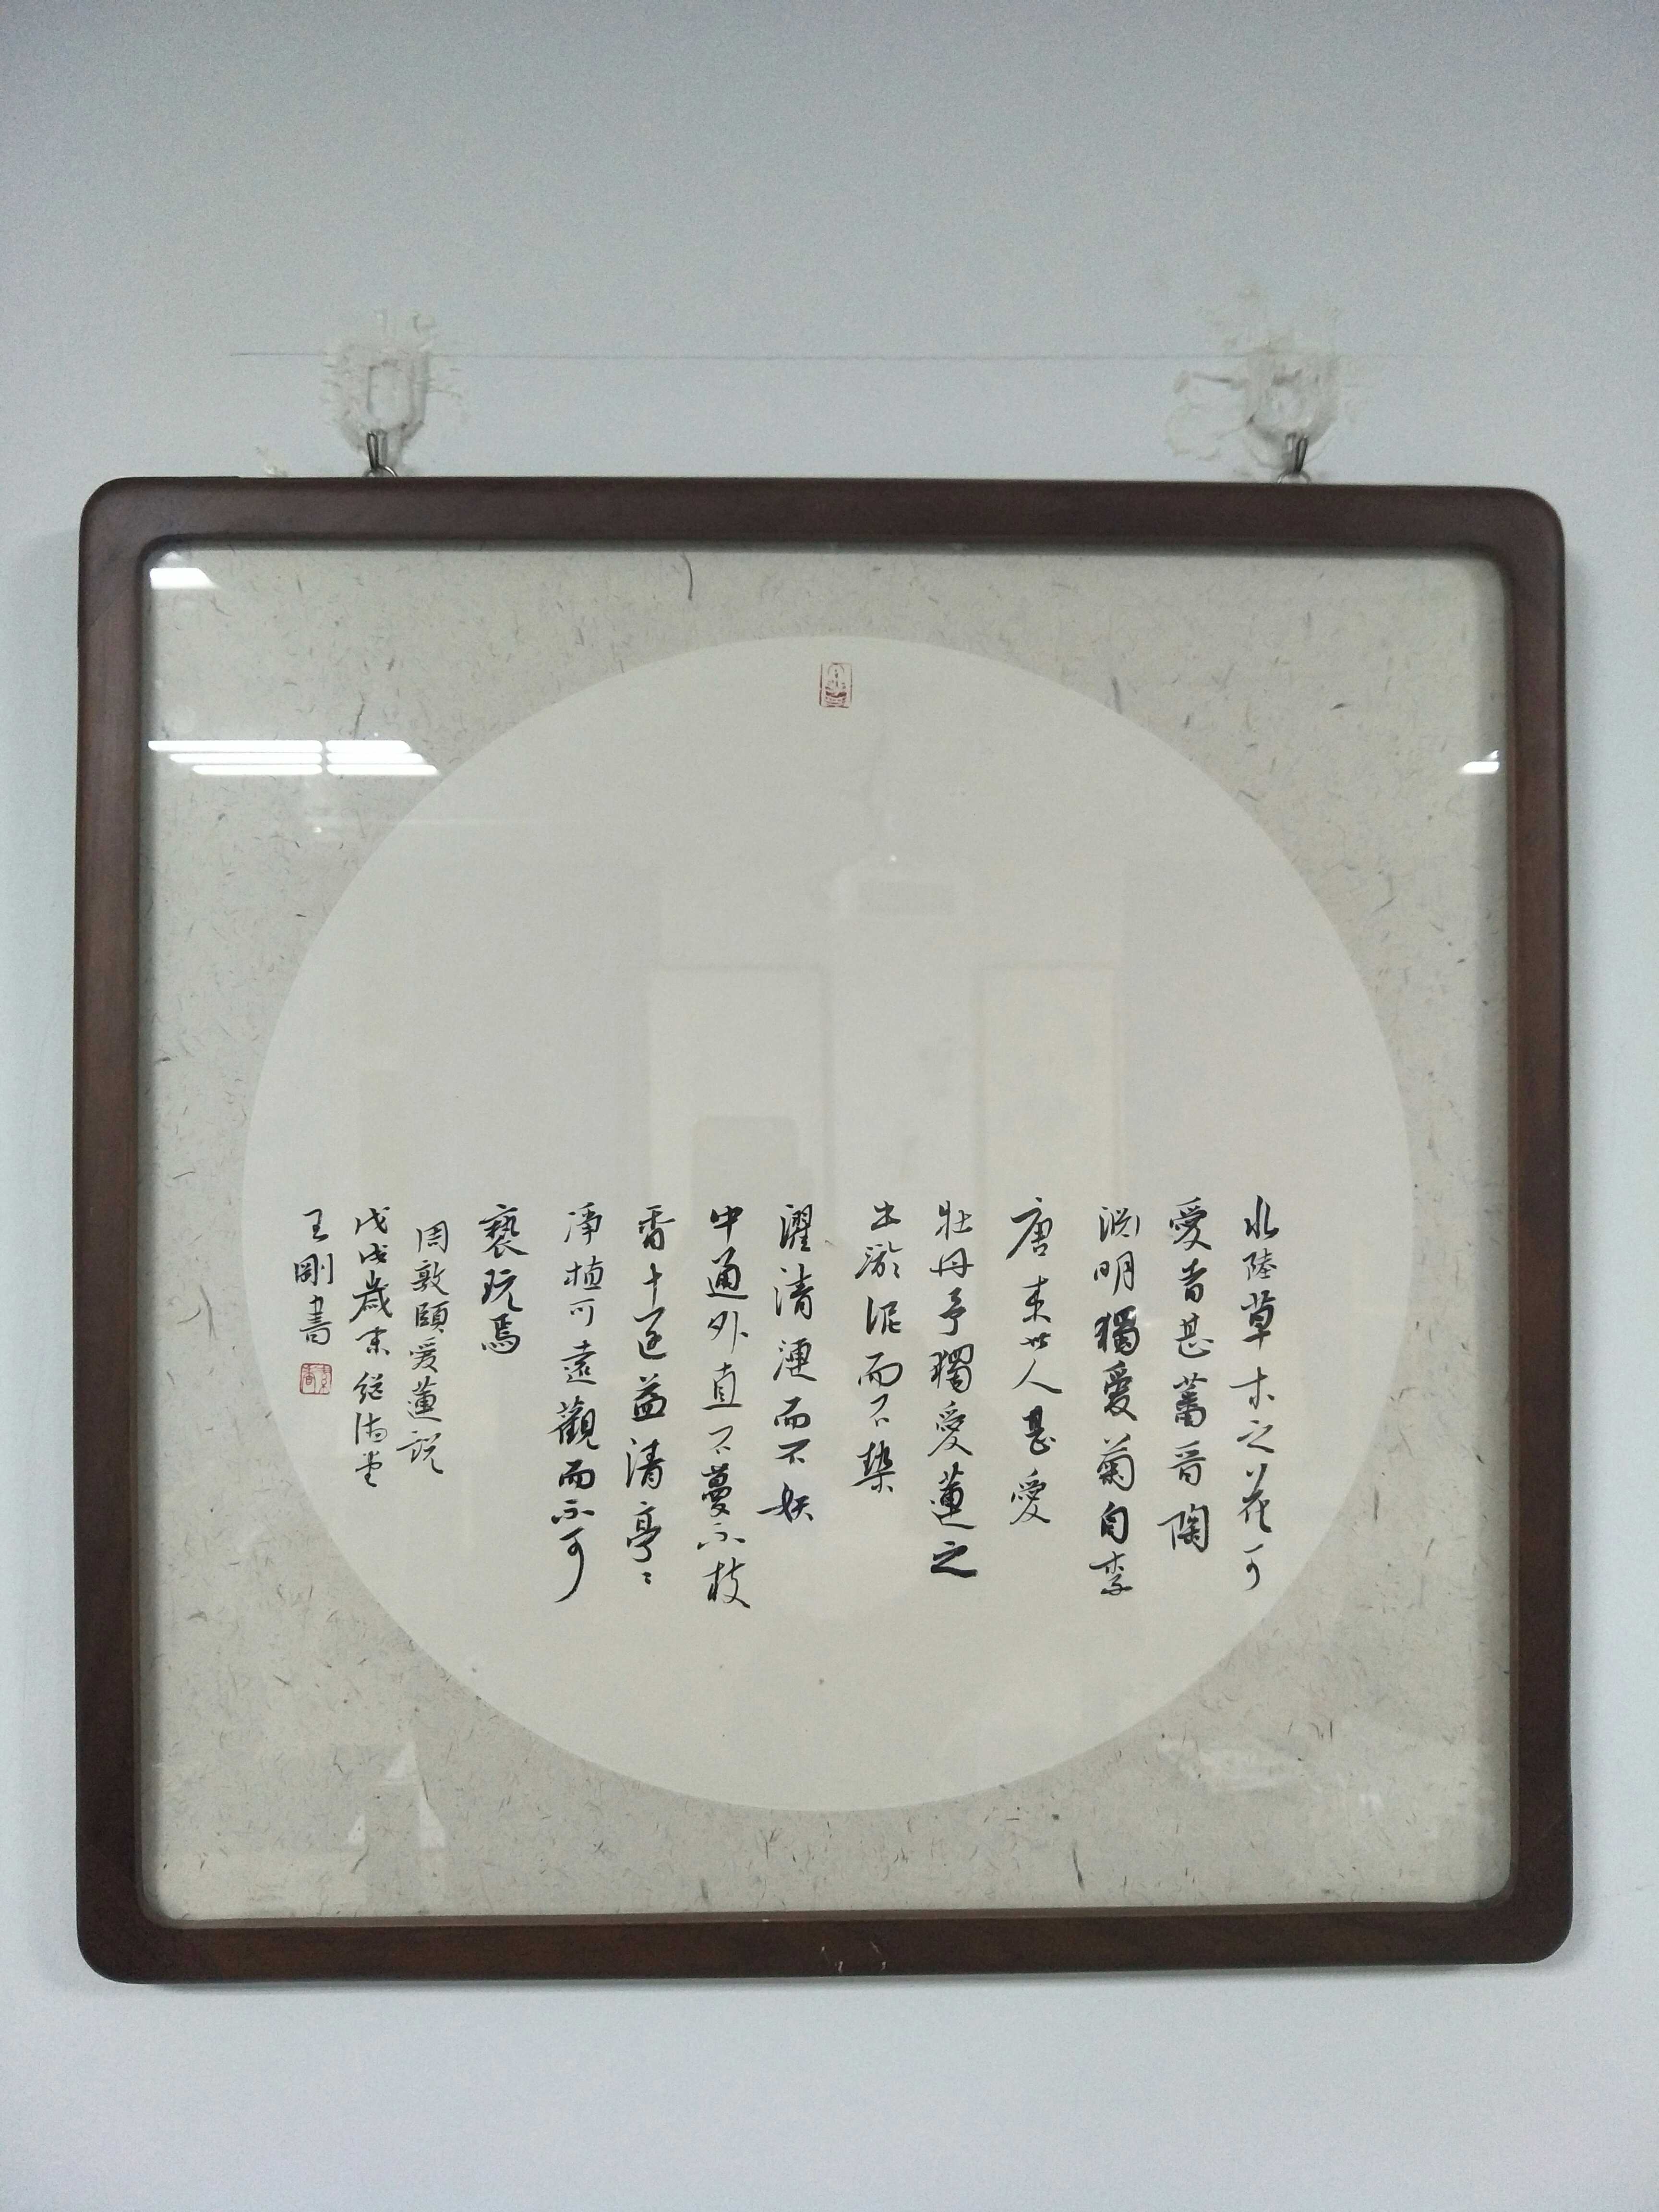 水陸草木之花可
愛者甚蕃晉陶
渊明獨愛菊自李
唐来世人甚愛
牡丹予獨愛蓮之
出淤泥而不染
濯清漣而不妖
中通外直不蔓不枝
香遠益清亭〻
淨植可遠觀而不可
褻玩焉
周敦頤爱蓮説
戊戌歲末
王剛書